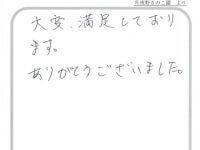 月夜野きのこ園 より
大変、満足しており
ます。
ありがとうございました。